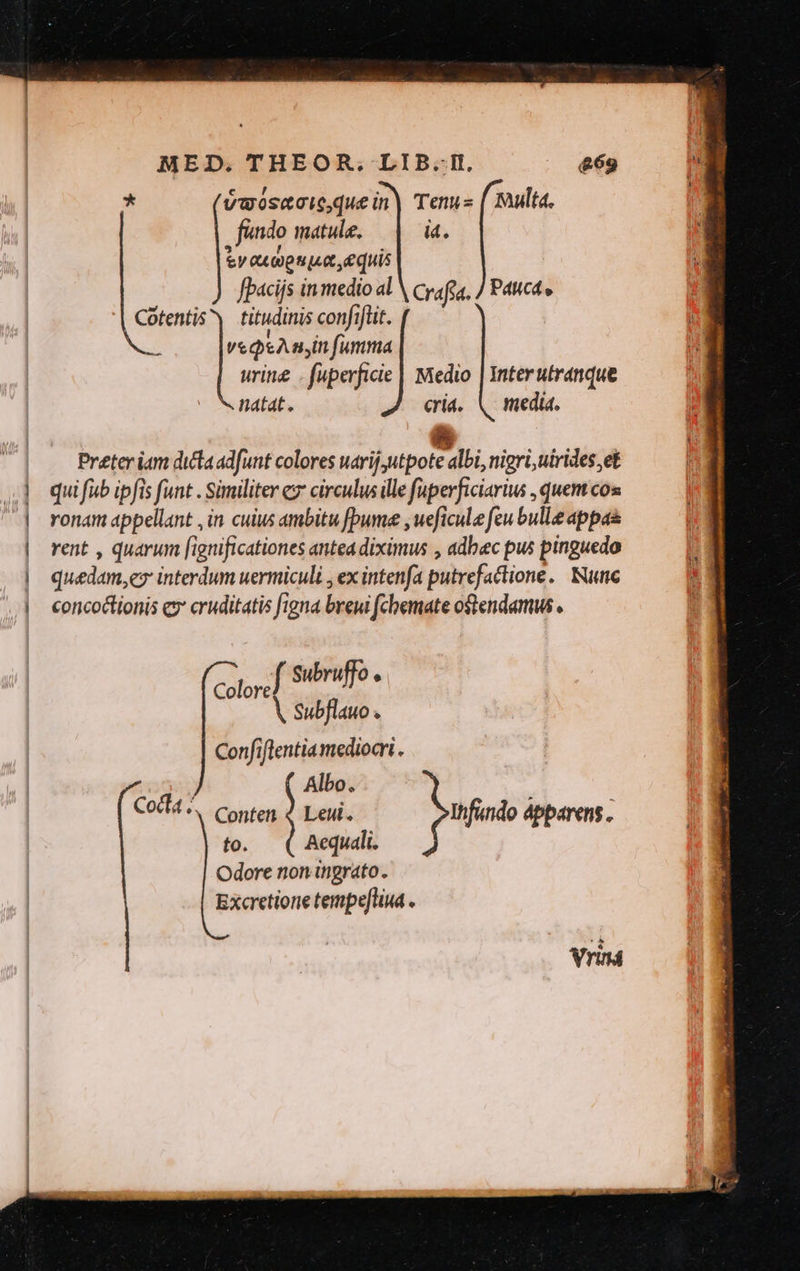 MED. THEOR. LIB. II. 269
* ὑπόστασις, quæ in Tenu= Multa.
fundo matulæ. id.
ἐναιώρημα, æquis
ſpacijs in medio al Craſſa. Pauca.
Cōtentis titudinis conſiſtit.
νεφέλη, in ſumma
urinæ ſuperficie Medio Inter utranque
natat. cria. media.
Præter iam dicta adſunt colores uarij, utpote albi, nigri, uirides, et
qui ſub ipſis ſunt. Similiter & circulus ille ſuperficiarius, quem co=
ronam appellant, in cuius ambitu ſpumæ, ueſiculæ ſeu bullæ appa=
rent, quarum ſignificationes antea diximus, adhæc pus pinguedo
quædam, & interdum uermiculi, ex intenſa putrefactione. Nunc
concoctionis & cruditatis ſigna breui ſchemate oſtendamus.
Colore Subruffo.
Subflauo.
Conſiſtentia mediocri.
Albo.
Cocta. Conten Leui. In fundo apparens.
to. Aequali.
Odore non ingrato.
Excretione tempeſtiua.
Vrina